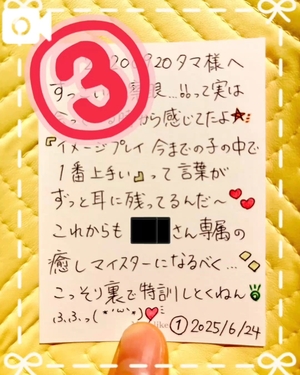 ③
20タマ様へ
って実は
から感じてたよ
『イメージプレイ 今までの子の中で
1番上手い』って言葉が
ずっと耳に残ってるんだ〜
これからも さん専属の
癒しマイスターになるべく…
こっそり裏で特訓しとくねん
ふふっ(*'ω'*)
① 2025/6/24